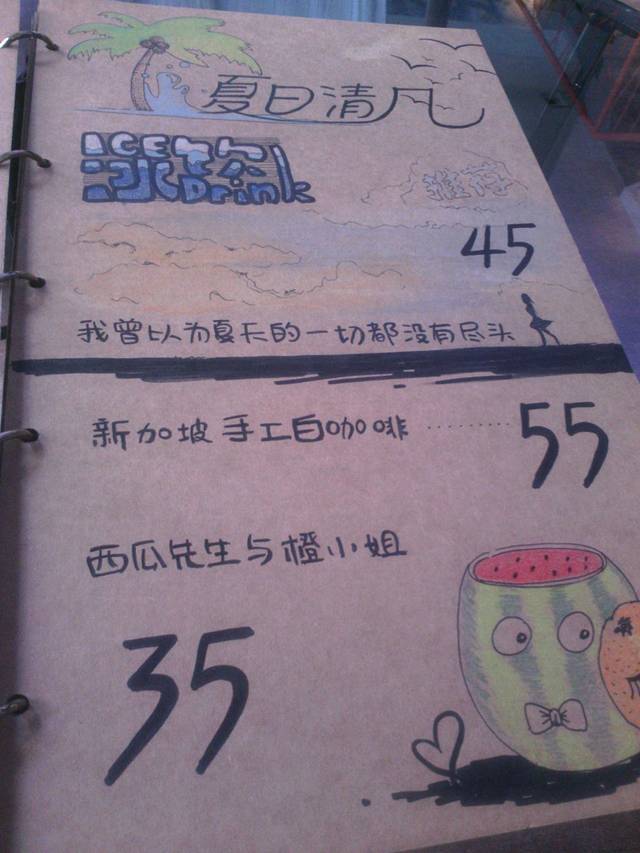 夏日清凡
ICE
冰饮
Drink
推荐
45
我曾以为夏天的一切都没有尽头
新加坡手工白咖啡.........55
西瓜先生与橙小姐
35